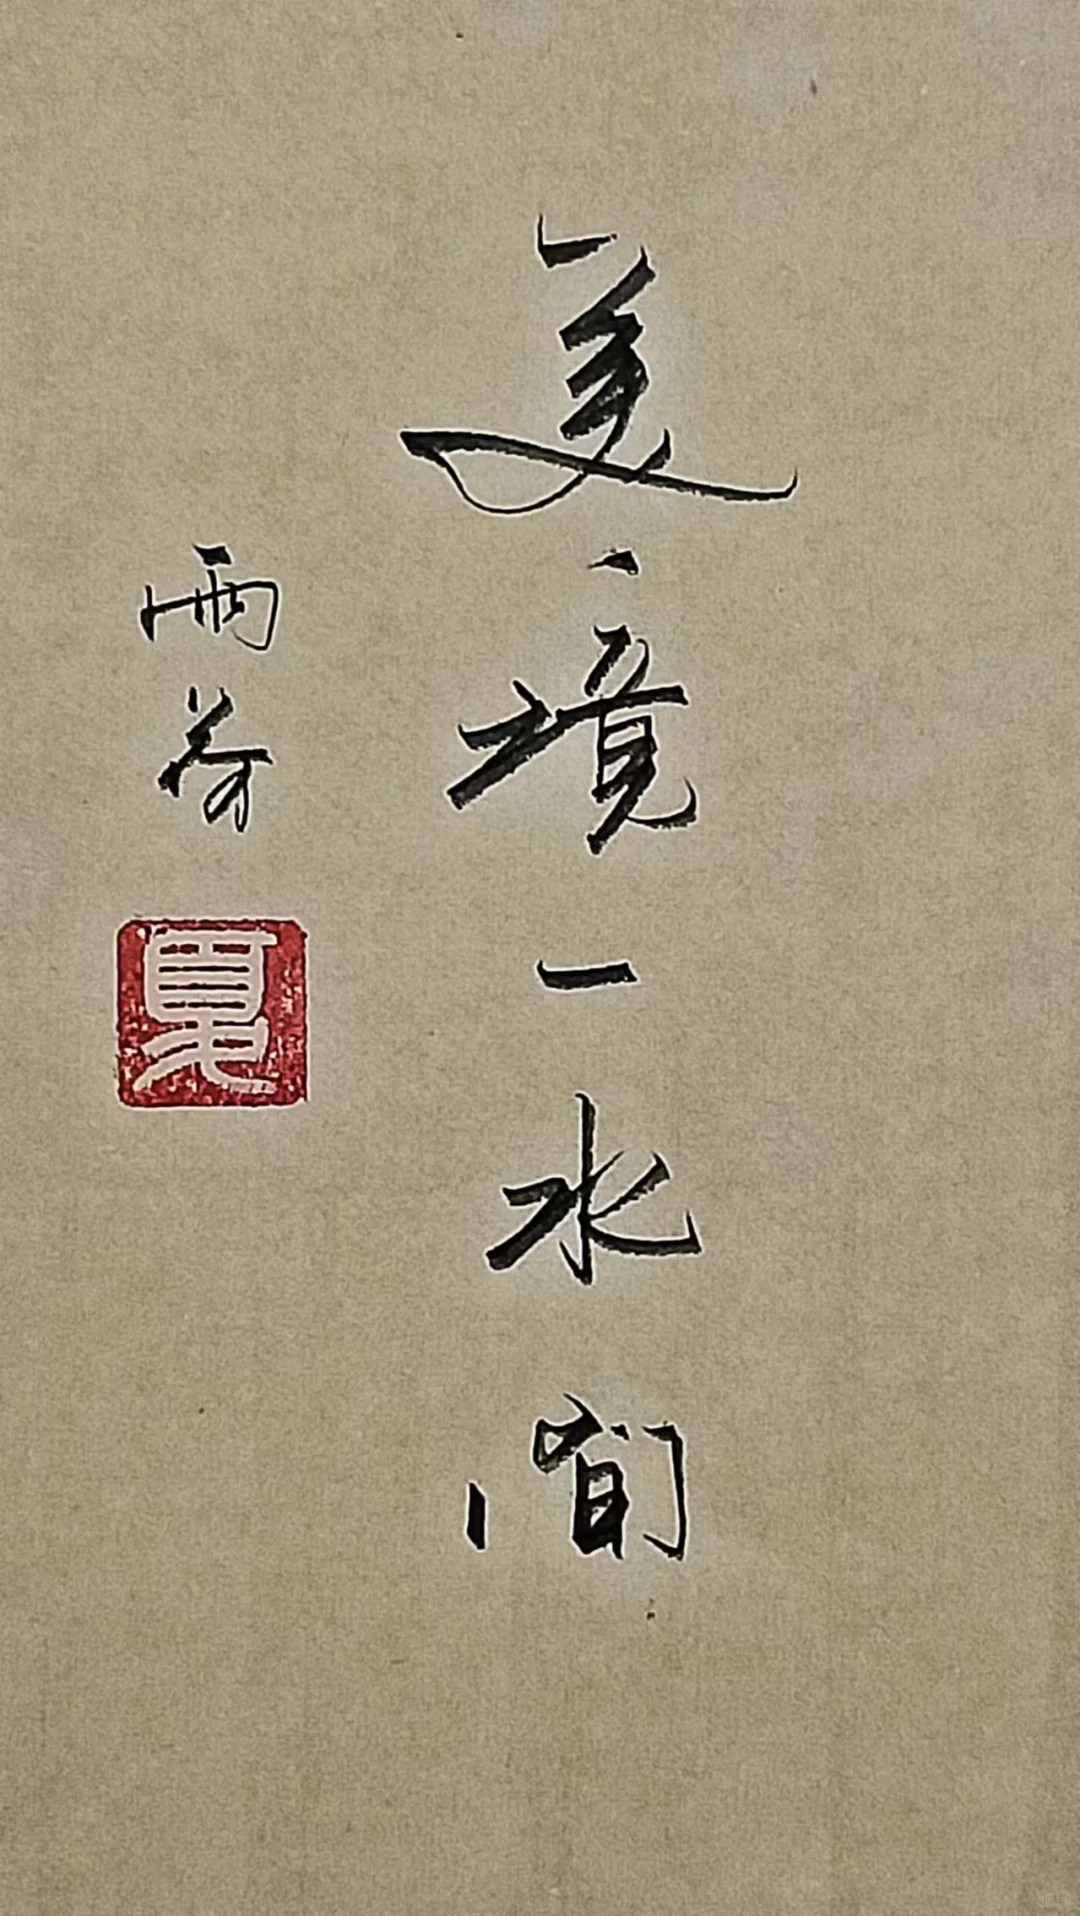 美境一水間
雨荷
夏